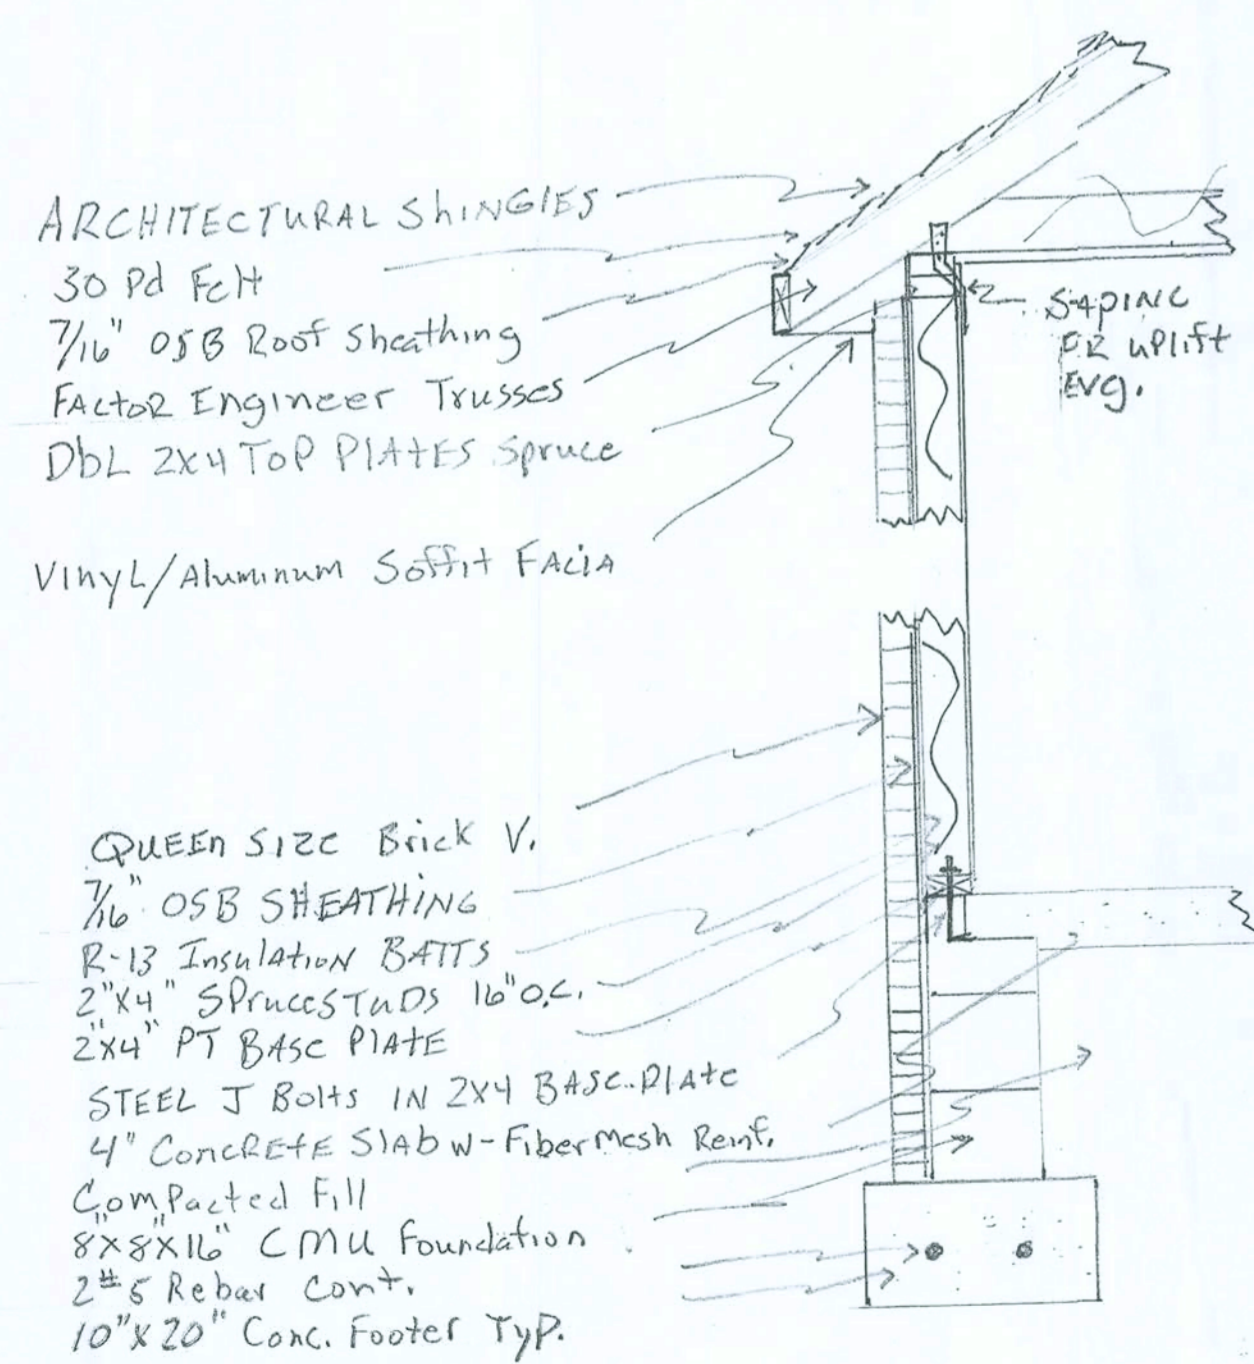 ARCHITECTURAL ShINGlES
30 Pd Felt
7/16" OSB Roof Sheathing
FActoR Engineer Trusses
DbL 2x4 ToP PlAtES Spruce
VinyL/Aluminum Soffit FAciA
S-apinc
FR uPlift
Evg.
QUEEn SIZE Brick V.
7/16" OSB SHEATHING
R-13 InsulAtioN BATTS
2"x4" SPruce STuDS 16" O.C.
2"x4" PT BASE PlAtE
STEEL J Bolts IN 2x4 BASE PlAtE
4" ConcREtE SlAb w-Fibermesh Reinf.
ComPacted Fill
8"x8"x16" CMU Foundation
2 #5 Rebar Cont.
10"x20" Conc. Footer TyP.